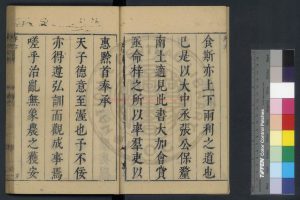 食斯亦上下兩利之道也
已是以大中丞張公保釐
南土適見此書大加會賞
亟命梓之所以率羣吏以
惠黔首奉承
天子德意至渥也予不佞
亦得遵弘訓而觀成事焉
嗟乎治亂無象農之獲安